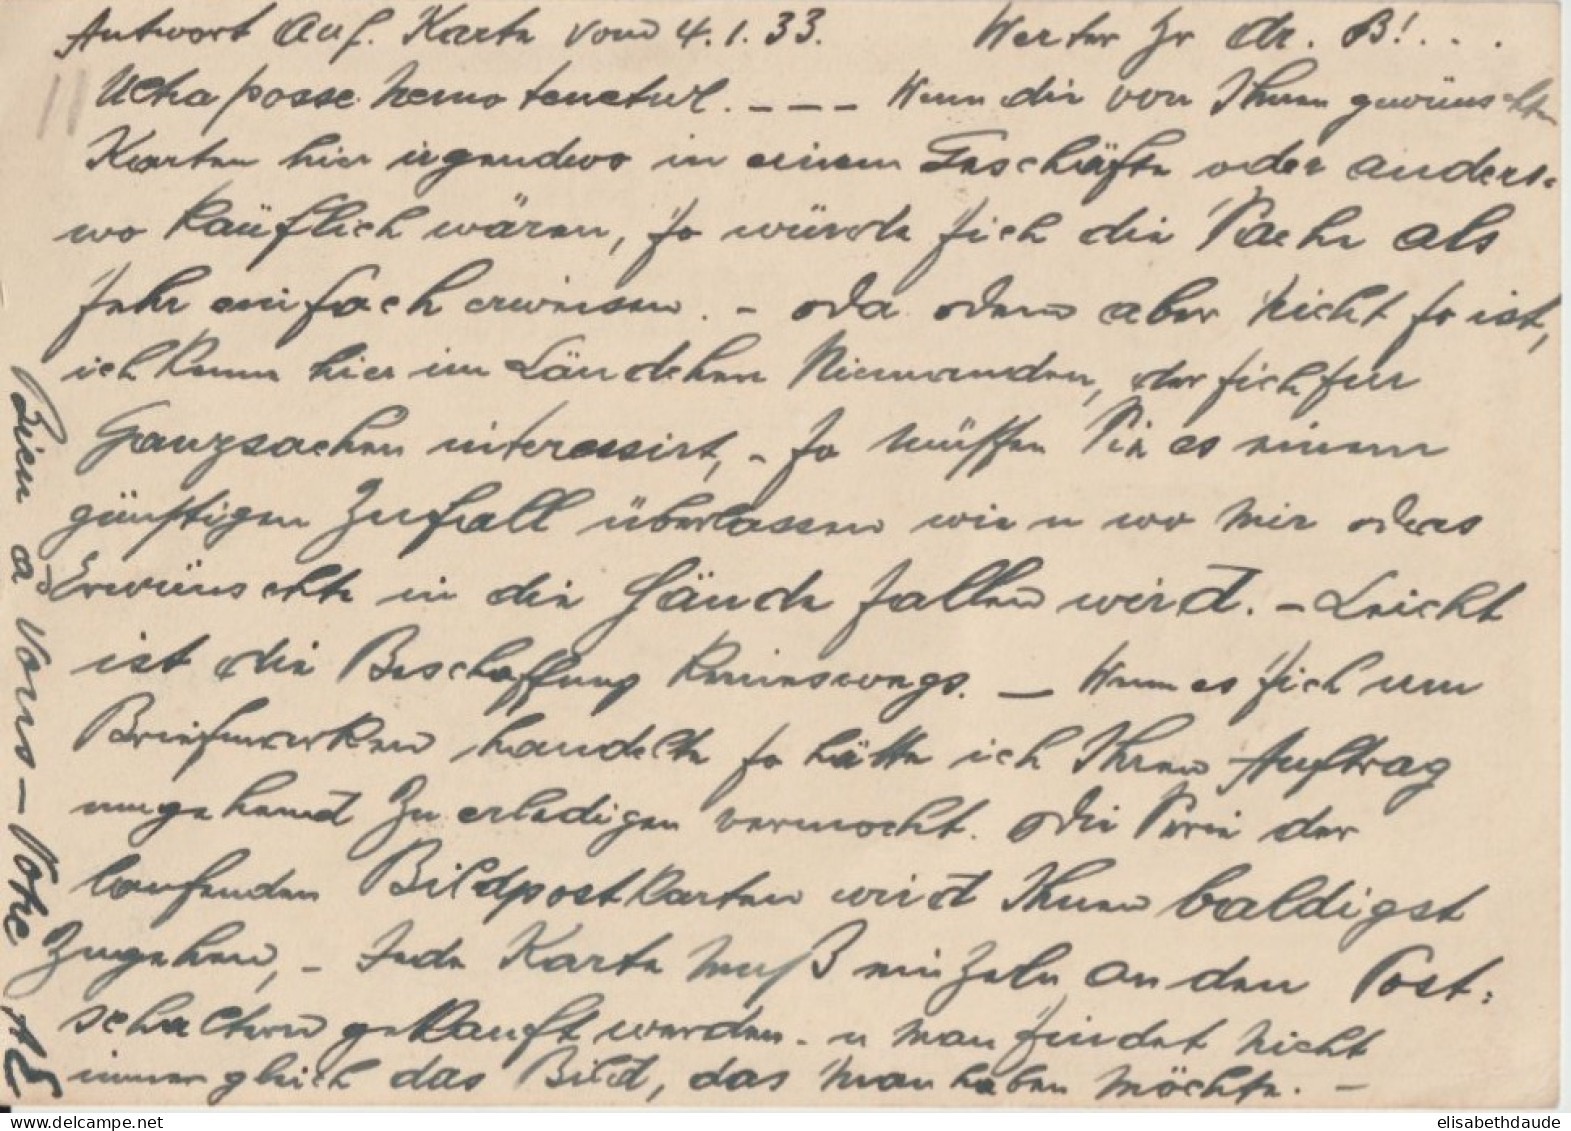 Antwort auf. Karte vom 4.1.33. Werter Hr Dr. B!...
Ultra posse nemo tenetur. - - - Wenn die von Ihnen gewünschten
Karten hier irgendwo in einem Geschäfte oder anders-
wo käuflich wären, so würde sich die Sache als
sehr einfach erweisen. - da dem aber nicht so ist,
ich kenne hier im Ländchen Niemanden, der sich für
Ganzsachen interessirt, - so müssen Sie es einem
günstigen Zufall überlassen wie u wo mir das
Erwünschte in die Hände fallen wird. - Leicht
ist die Beschaffung keineswegs. - Wenn es sich um
Briefmarken handelte so hätte ich Ihren Auftrag
umgehend zu erledigen vermocht. Die Serie der
laufenden Bildpostkarten wird Ihnen baldigst
zugehen, - Jede Karte muß einzeln an den Post-
schaltern gekauft werden. u man findet nicht
immer gleich das Bild, das man haben möchte. -
à vous -
elisabethdaude